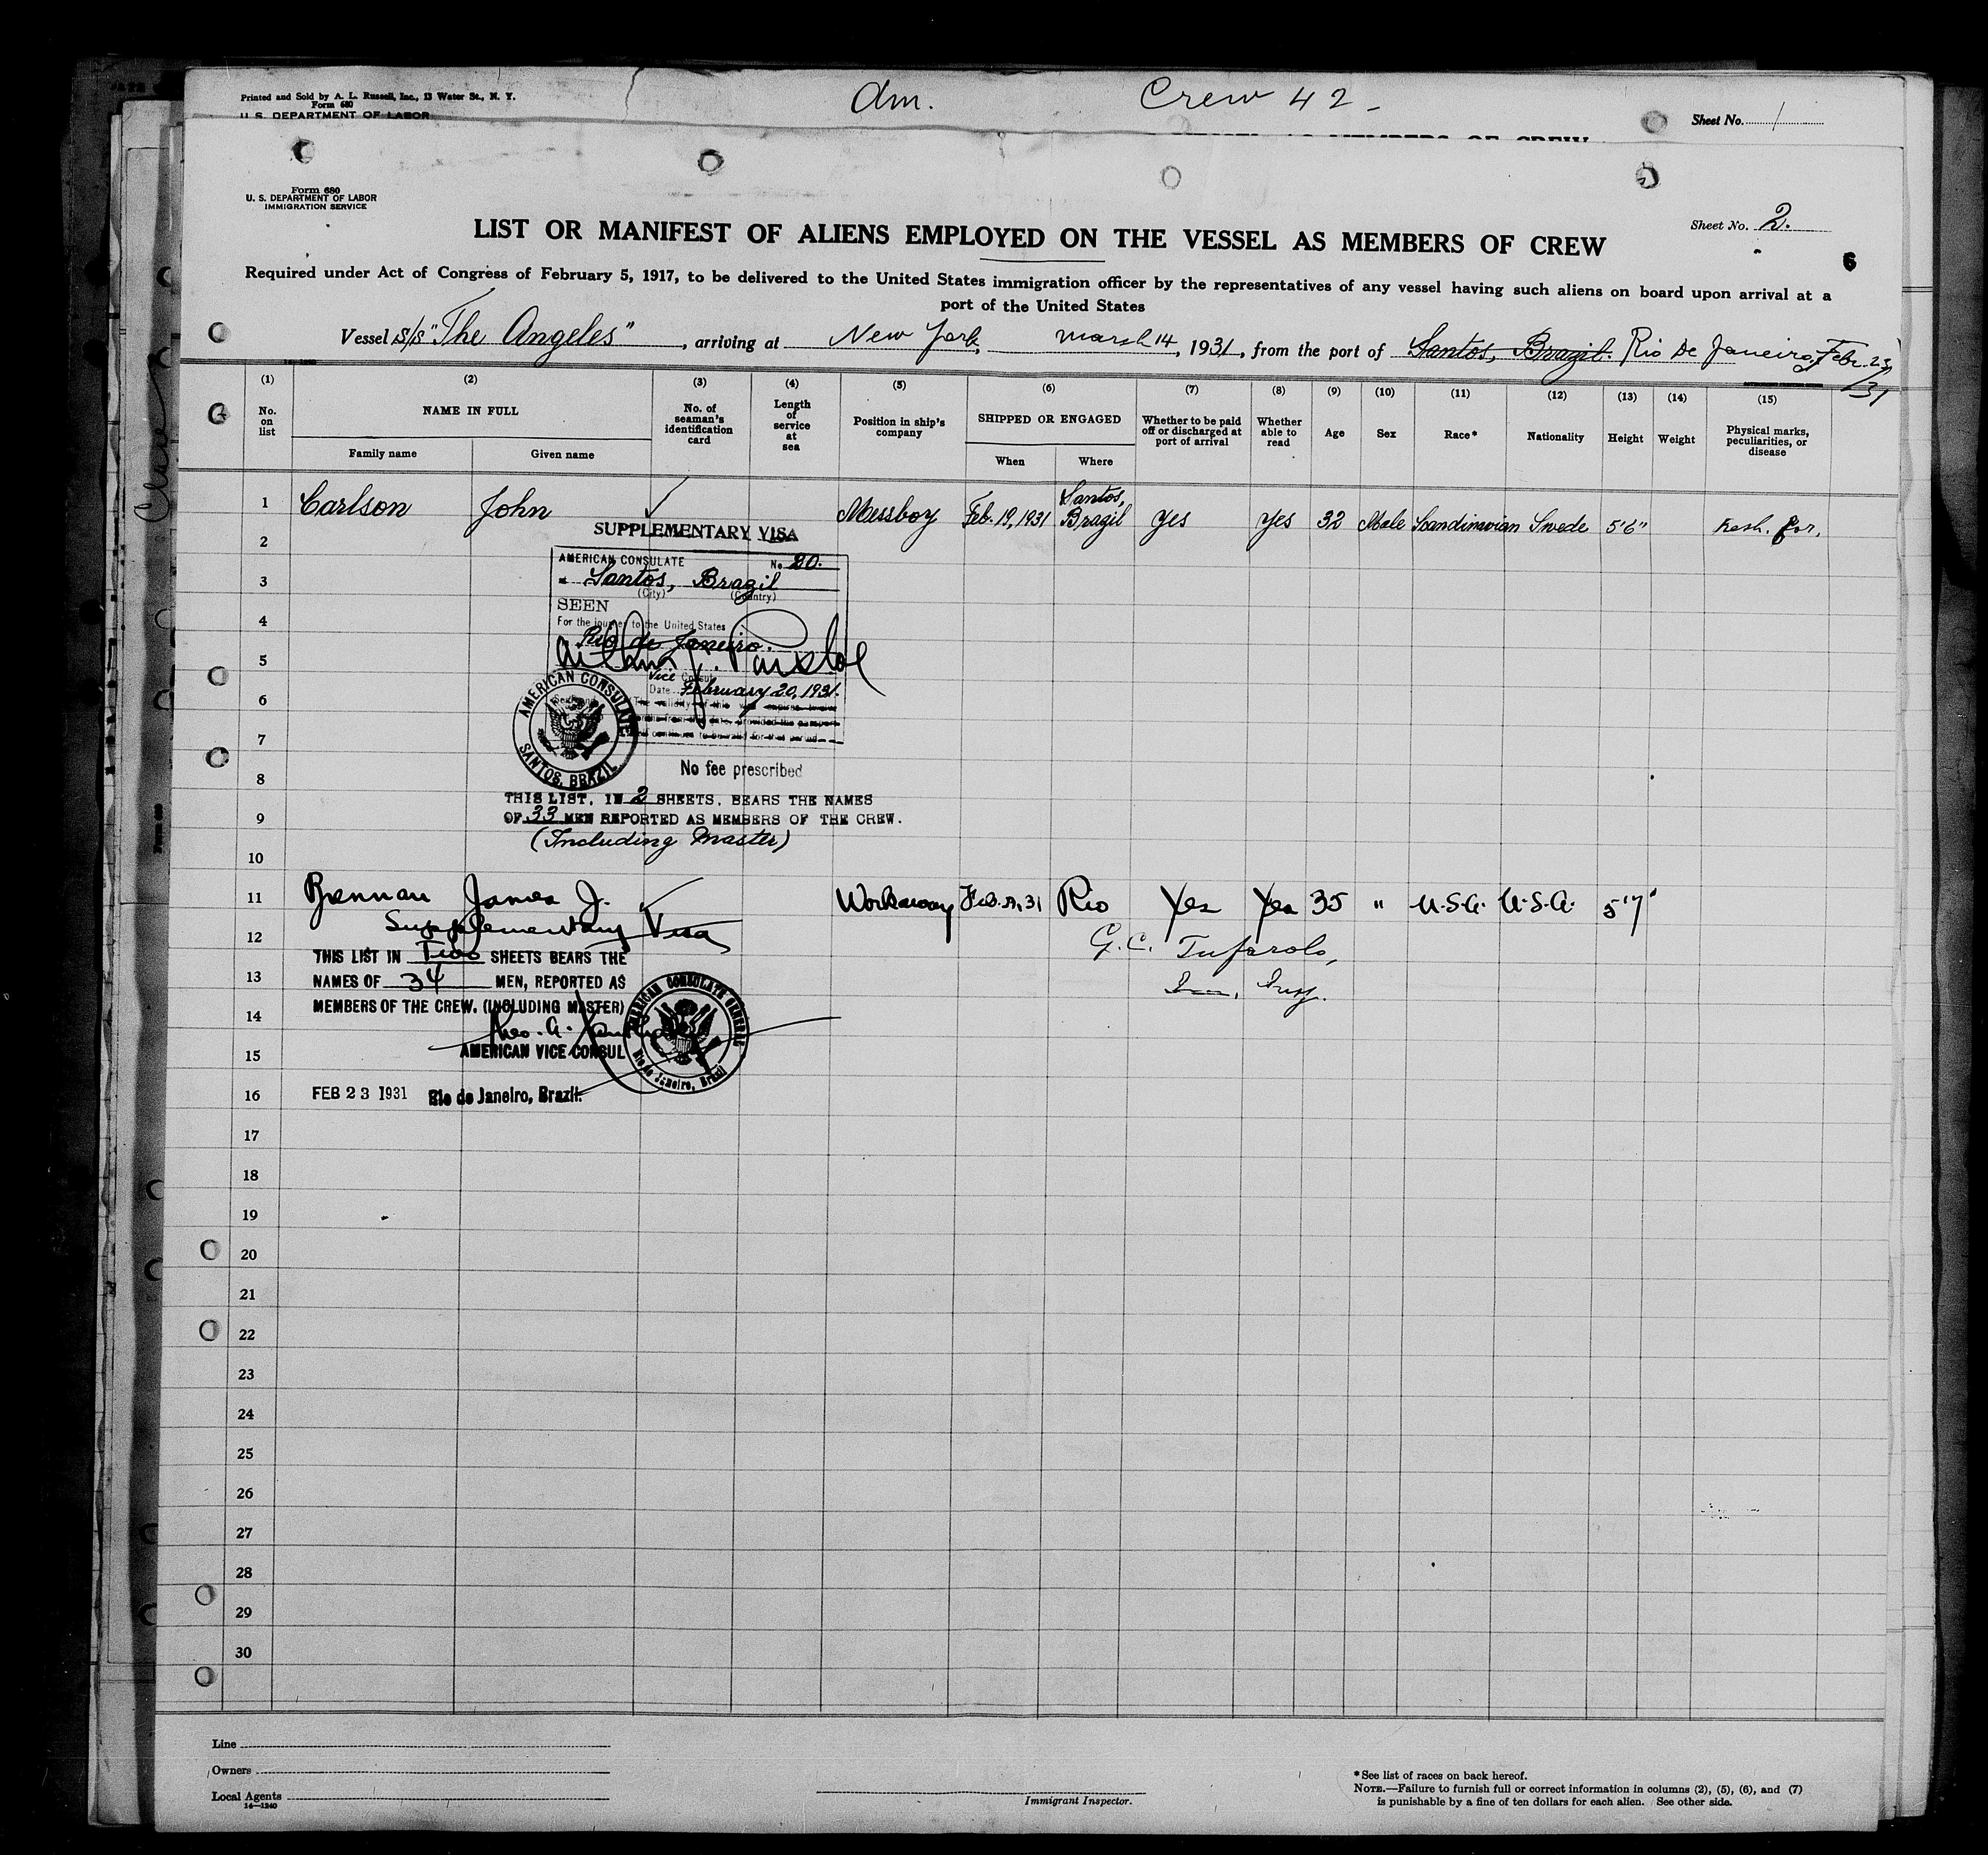 Printed and Sold by A. L. Russell, Inc., 13 Water St., N. Y.
Form 680
U. S. DEPARTMENT OF LABOR
Am. Crew 42 -
Sheet No. 1
Form 680
U. S. DEPARTMENT OF LABOR
IMMIGRATION SERVICE
Sheet No. 2.
LIST OR MANIFEST OF ALIENS EMPLOYED ON THE VESSEL AS MEMBERS OF CREW
6
Required under Act of Congress of February 5, 1917, to be delivered to the United States immigration officer by the representatives of any vessel having such aliens on board upon arrival at a
port of the United States
Vessel S/S "The Angeles", arriving at New York, March 14, 1931, from the port of Santos, Brazil. Rio De Janeiro, Febr. 23/31
(1) (2) (3) (4) (5) (6) (7) (8) (9) (10) (11) (12) (13) (14) (15)
No. on list
NAME IN FULL
Family name
Given name
No. of seaman's identification card
Length of service at sea
Position in ship's company
SHIPPED OR ENGAGED
When
Where
Whether to be paid off or discharged at port of arrival
Whether able to read
Age
Sex
Race*
Nationality
Height
Weight
Physical marks, peculiarities, or disease
1 Carlson John Messboy Feb. 19, 1931 Santos, Brazil Yes Yes 32 Male Scandinavian Swede 5'6"
SUPPLEMENTARY VISA
2
AMERICAN CONSULATE No 20.
3 Santos, Brazil
(City) (Country)
SEEN
4 For the journey to the United States
Rio de Janeiro.
5
Vice Consul
6 Date February 20, 1931.
AMERICAN CONSULATE
SANTOS, BRAZIL
7
8 No fee prescribed
THIS LIST, IN 2 SHEETS, BEARS THE NAMES
9 OF 33 MEN REPORTED AS MEMBERS OF THE CREW.
(Including Master)
10
11 Brennan James J. Workaway Rio Yes Yes 35 " U.S.A. U.S.A. 5'7"
Supplementary Visa
12 G. C. Tufarolo,
THIS LIST IN Two SHEETS BEARS THE
13 NAMES OF 34 MEN, REPORTED AS
Imm. Insp.
MEMBERS OF THE CREW. (INCLUDING MASTER)
14
AMERICAN CONSULATE GENERAL
Rio de Janeiro, Brazil
15 AMERICAN VICE CONSUL
16 FEB 23 1931 Rio de Janeiro, Brazil.
17
18
19
20
21
22
23
24
25
26
27
28
29
30
Line
Owners
Local Agents
14—1240
Immigrant Inspector.
*See list of races on back hereof.
NOTE.—Failure to furnish full or correct information in columns (2), (5), (6), and (7)
is punishable by a fine of ten dollars for each alien. See other side.